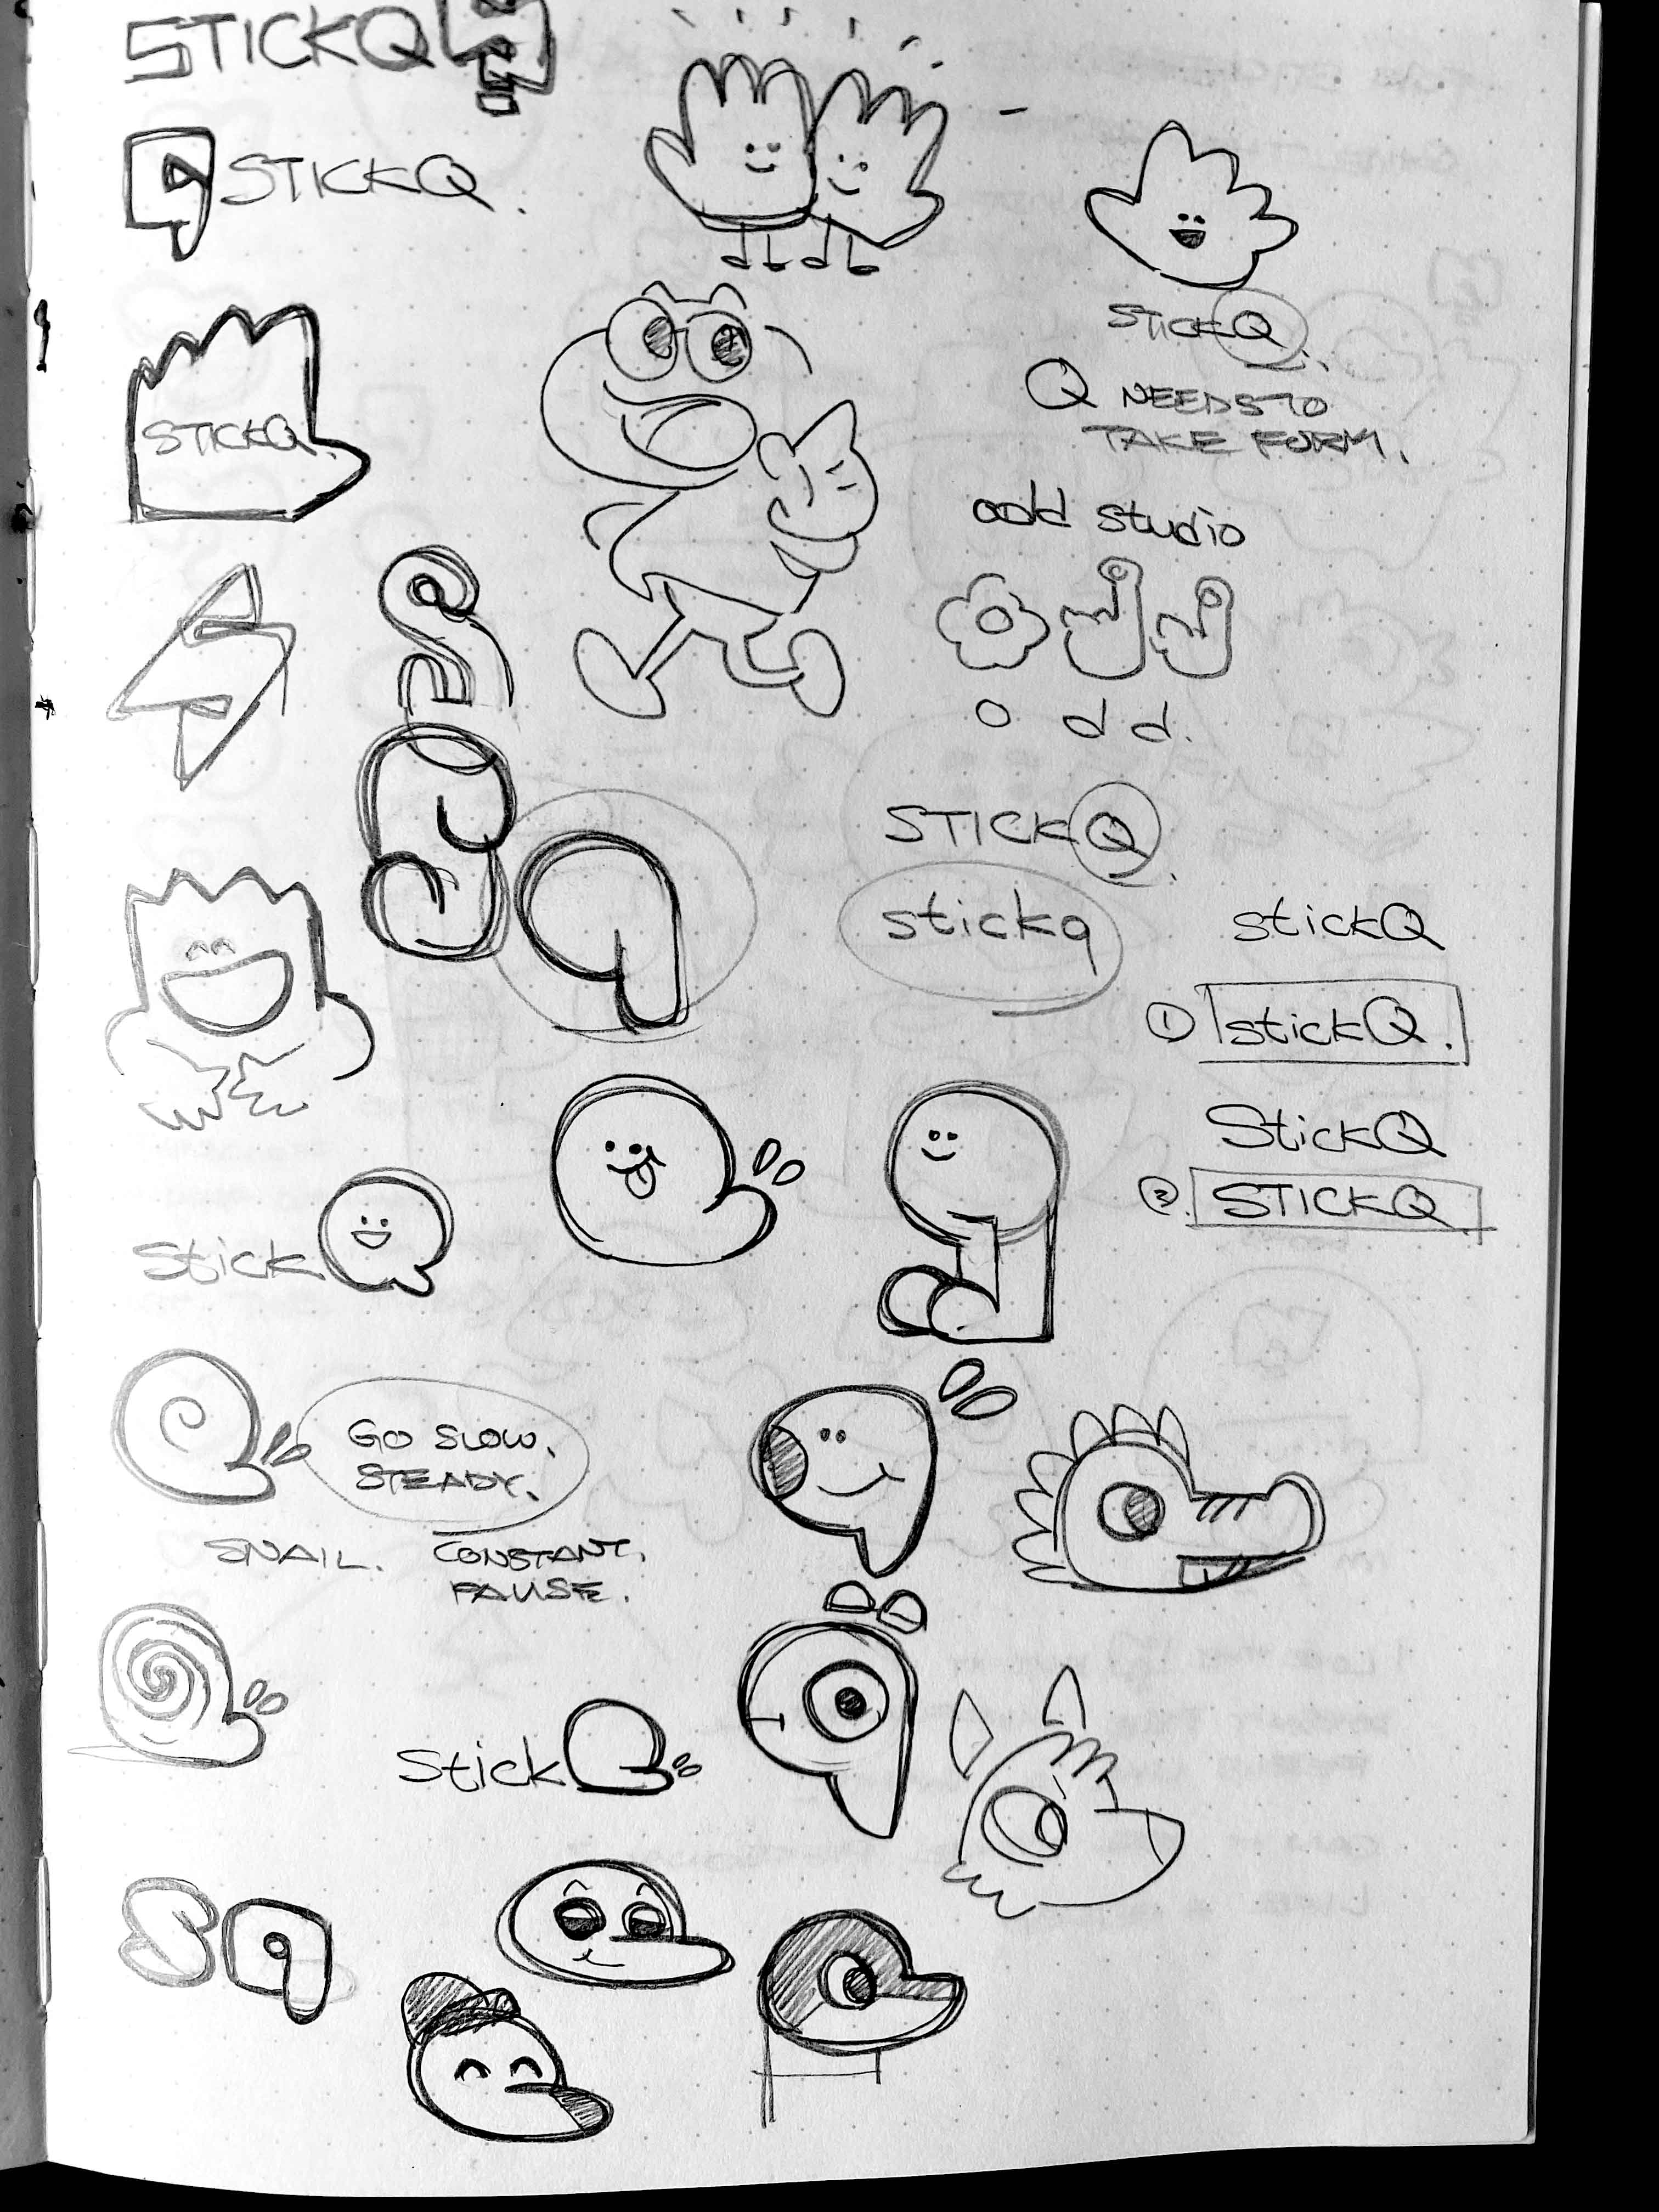 STICKQ
STICKQ.
STICKQ.
STICKQ.
Q NEEDS TO
TAKE FORM.
odd studio
o d d.
STICKQ.
stickq
stickQ
① stickQ.
StickQ
②. STICKQ.
Stick
GO SLOW,
STEADY.
SNAIL.
CONSTANT.
PAUSE.
Stick
sq